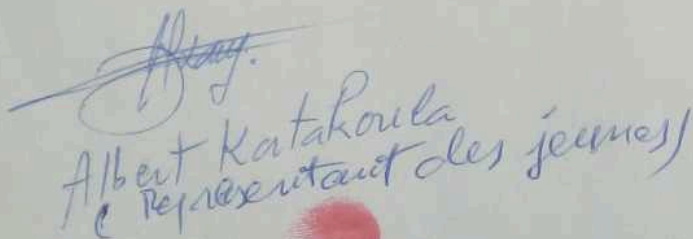 Albert Katakoula
( Représentant des jeunes)